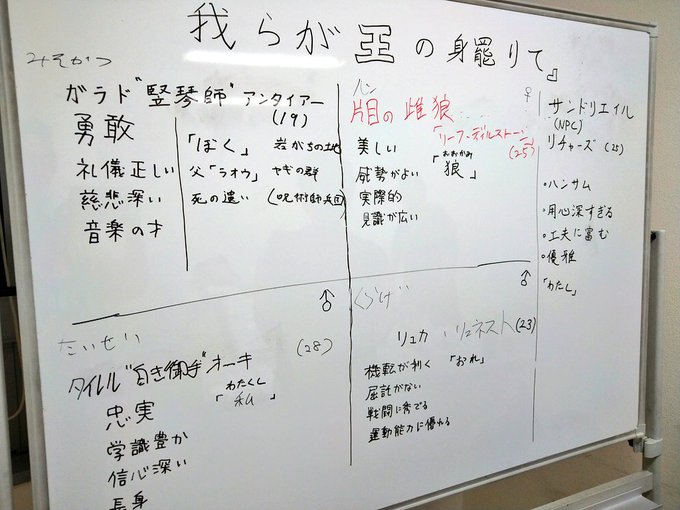 我らが王の身罷りて』
みそかつ
ガラド"竪琴師"アンタイアー
(19)
勇敢
礼儀正しい
慈悲深い
音楽の才
「ぼく」 岩がちの土地
父「ラオウ」 ヤギの群
死の遣い (呪術師兵団)
ハン
♀
片目の雌狼
「リーフ・ディルストーン」
(25)
美しい
威勢がよい
実際的
見識が広い
おおかみ
「狼」
サンドリエイル
(NPC)
リチャーズ (25)
・ハンサム
・用心深すぎる
・工夫に富む
・優雅
「わたし」
♂
たいせい
(28)
タイルル"白き御手"オーキ
わたくし
「私」
忠実
学識豊か
信心深い
長身
♂
くらげ
リュカ・リュネスト(23)
機転が利く 「おれ」
屈託がない
戦闘に秀でる
運動能力に優れる